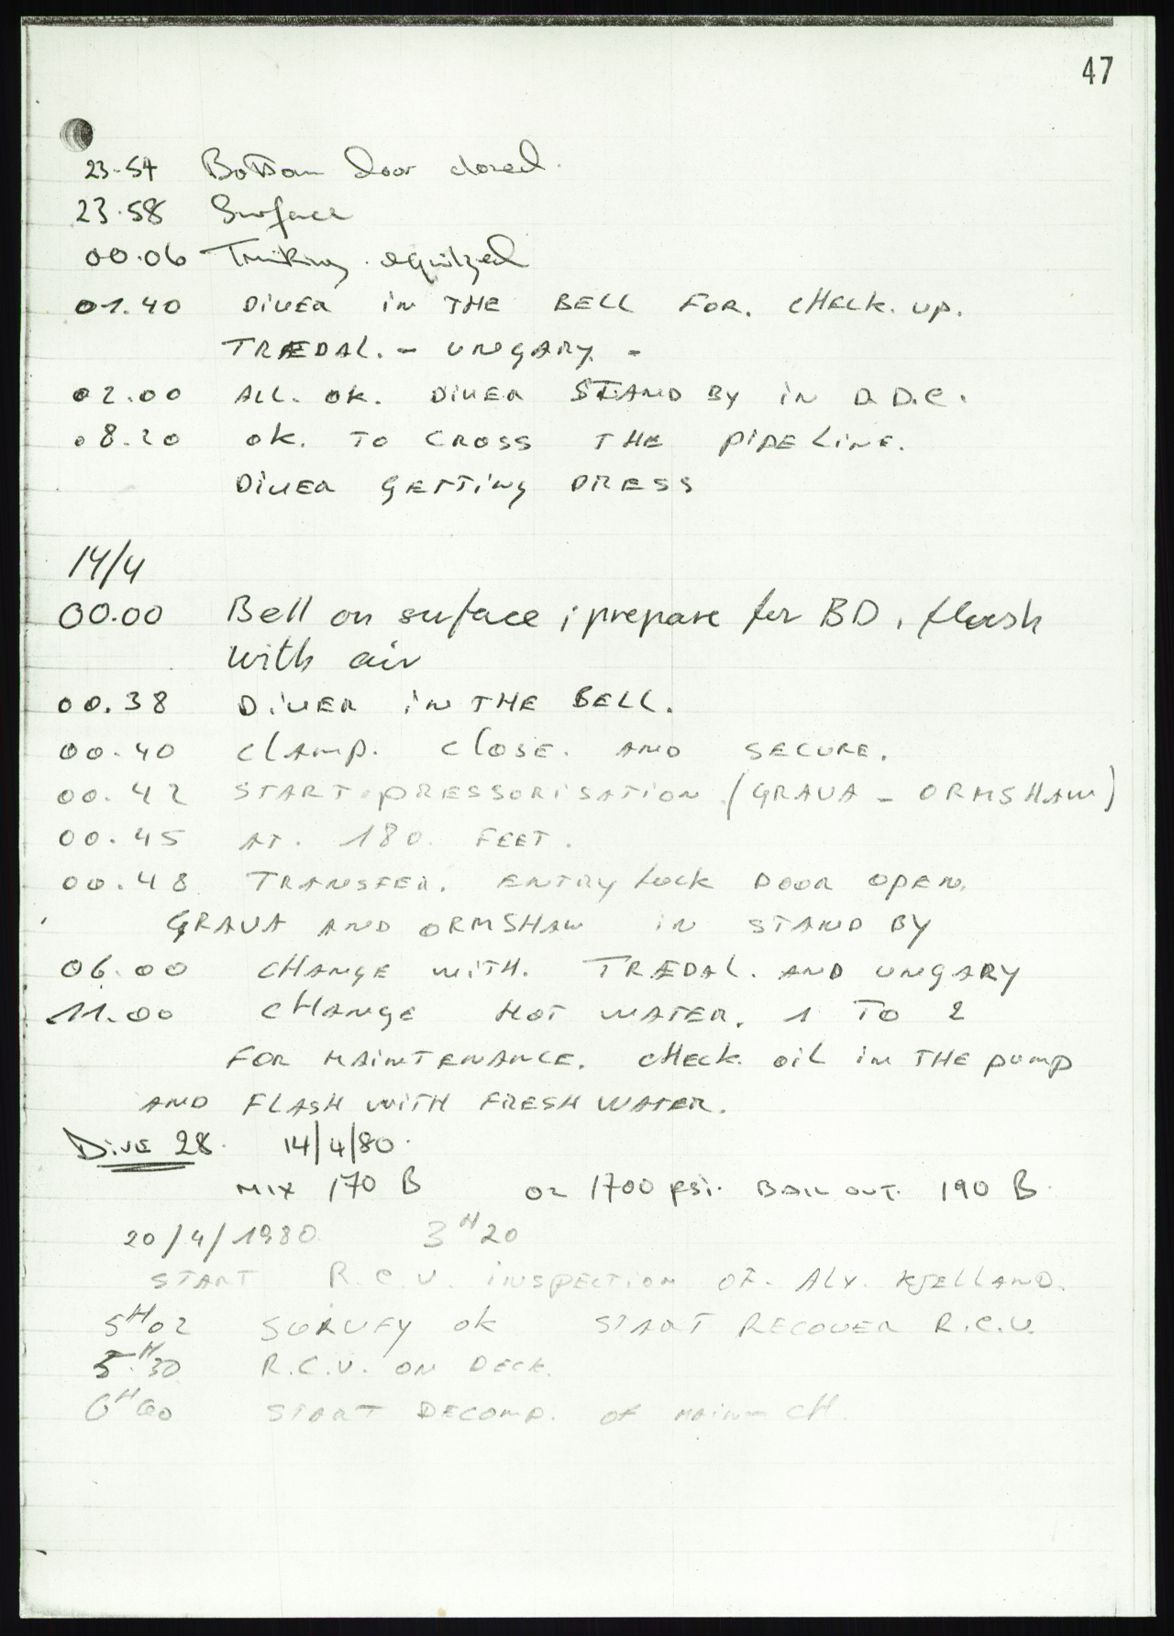 47
23-54 Bottom door closed.
23.58 Surface
00.06 Trunking equilized
01.40 DIVER IN THE BELL FOR. CHECK. UP.
TRÆDAL. - UNGARY. -
02.00 ALL. OK. DIVER STAND BY IN D.D.C.
08.20 OK. TO CROSS THE PIPELINE.
DIVER GETTING DRESS
14/4
00.00 Bell on surface ; prepare for BD, flush
with air
00.38 DIVER IN THE BELL.
00.40 CLAMP. CLOSE. AND SECURE.
00.42 START PRESSORISATION (GRAVA - ORMSHAW)
00.45 AT. 180. FEET.
00.48 TRANSFER. ENTRY LOCK DOOR OPEN.
GRAVA AND ORMSHAW IN STAND BY
06.00 CHANGE WITH. TRÆDAL. AND UNGARY
11.00 CHANGE HOT WATER. 1 TO 2
FOR MAINTENANCE. CHECK OIL IN THE PUMP
AND FLASH WITH FRESH WATER.
DIVE 28. 14/4/80.
MIX 170 B O2 1700 psi. BAIL OUT. 190 B.
20/4/1980. 3H20
START R.C.V. INSPECTION OF. ALX. KJELLAND.
5H02 SURVEY OK START RECOVER R.C.V.
5H30 R.C.V. ON DECK.
6H00 START DECOMP. OF MAIN CH.